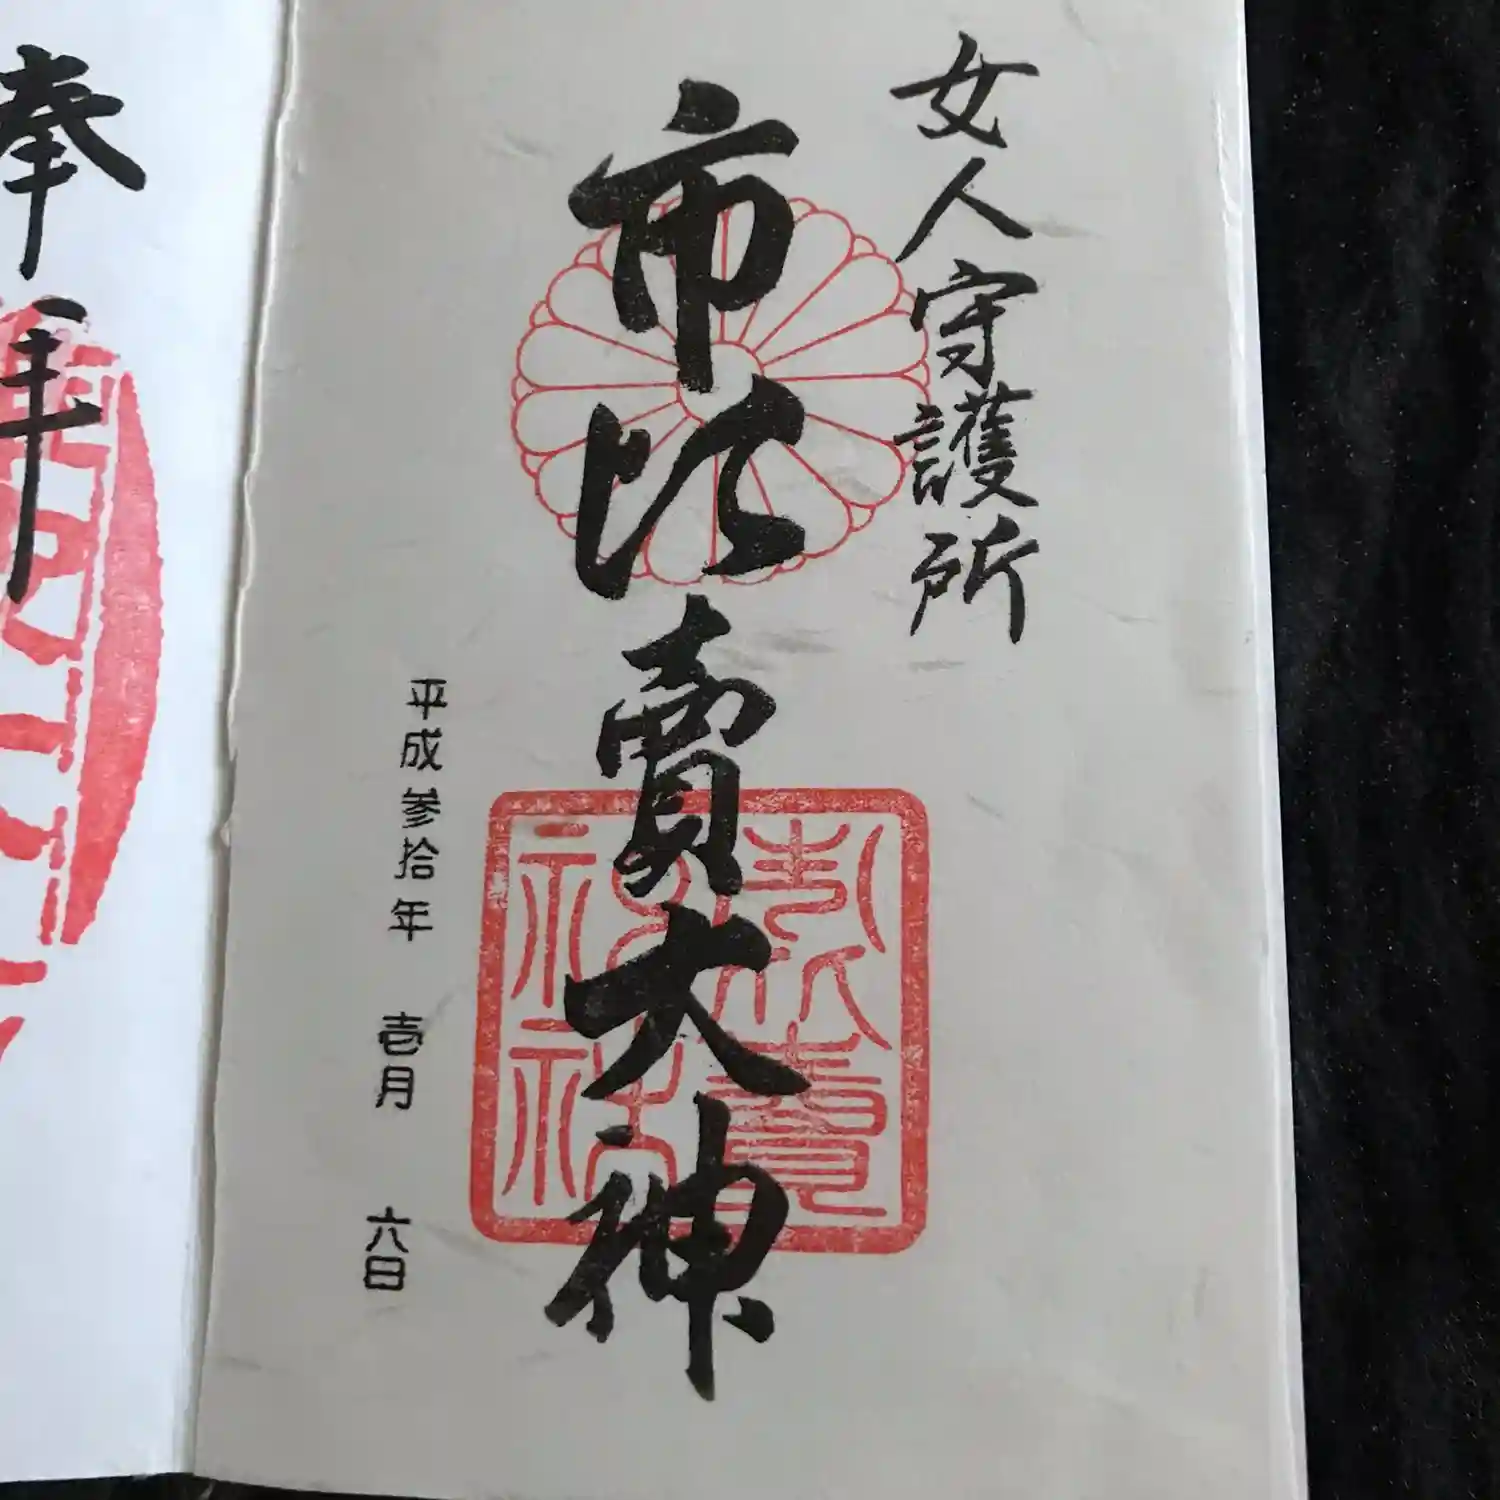 女人守護所
市比賣大神
市比賣神社
平成参拾年 壱月 六日
奉拝